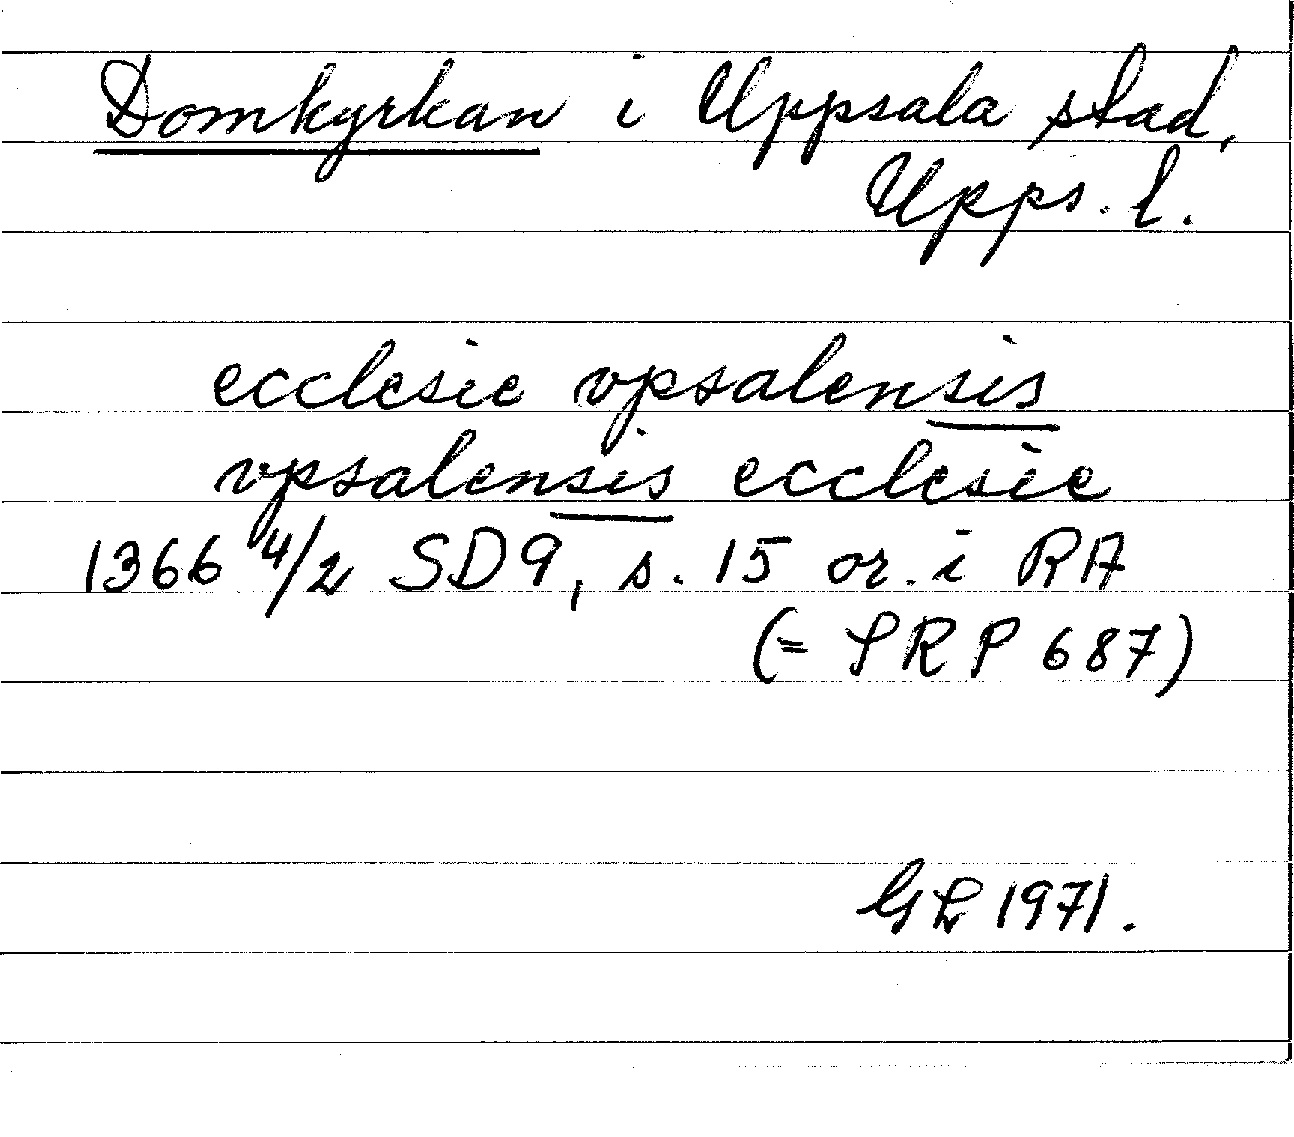 Domkyrkan i Uppsala stad,
Upps. l.
ecclesie vpsalensis
vpsalensis ecclesie
1366 4/2 SD9, s. 15 or. i RA
(= SRP 687)
GL 1971.